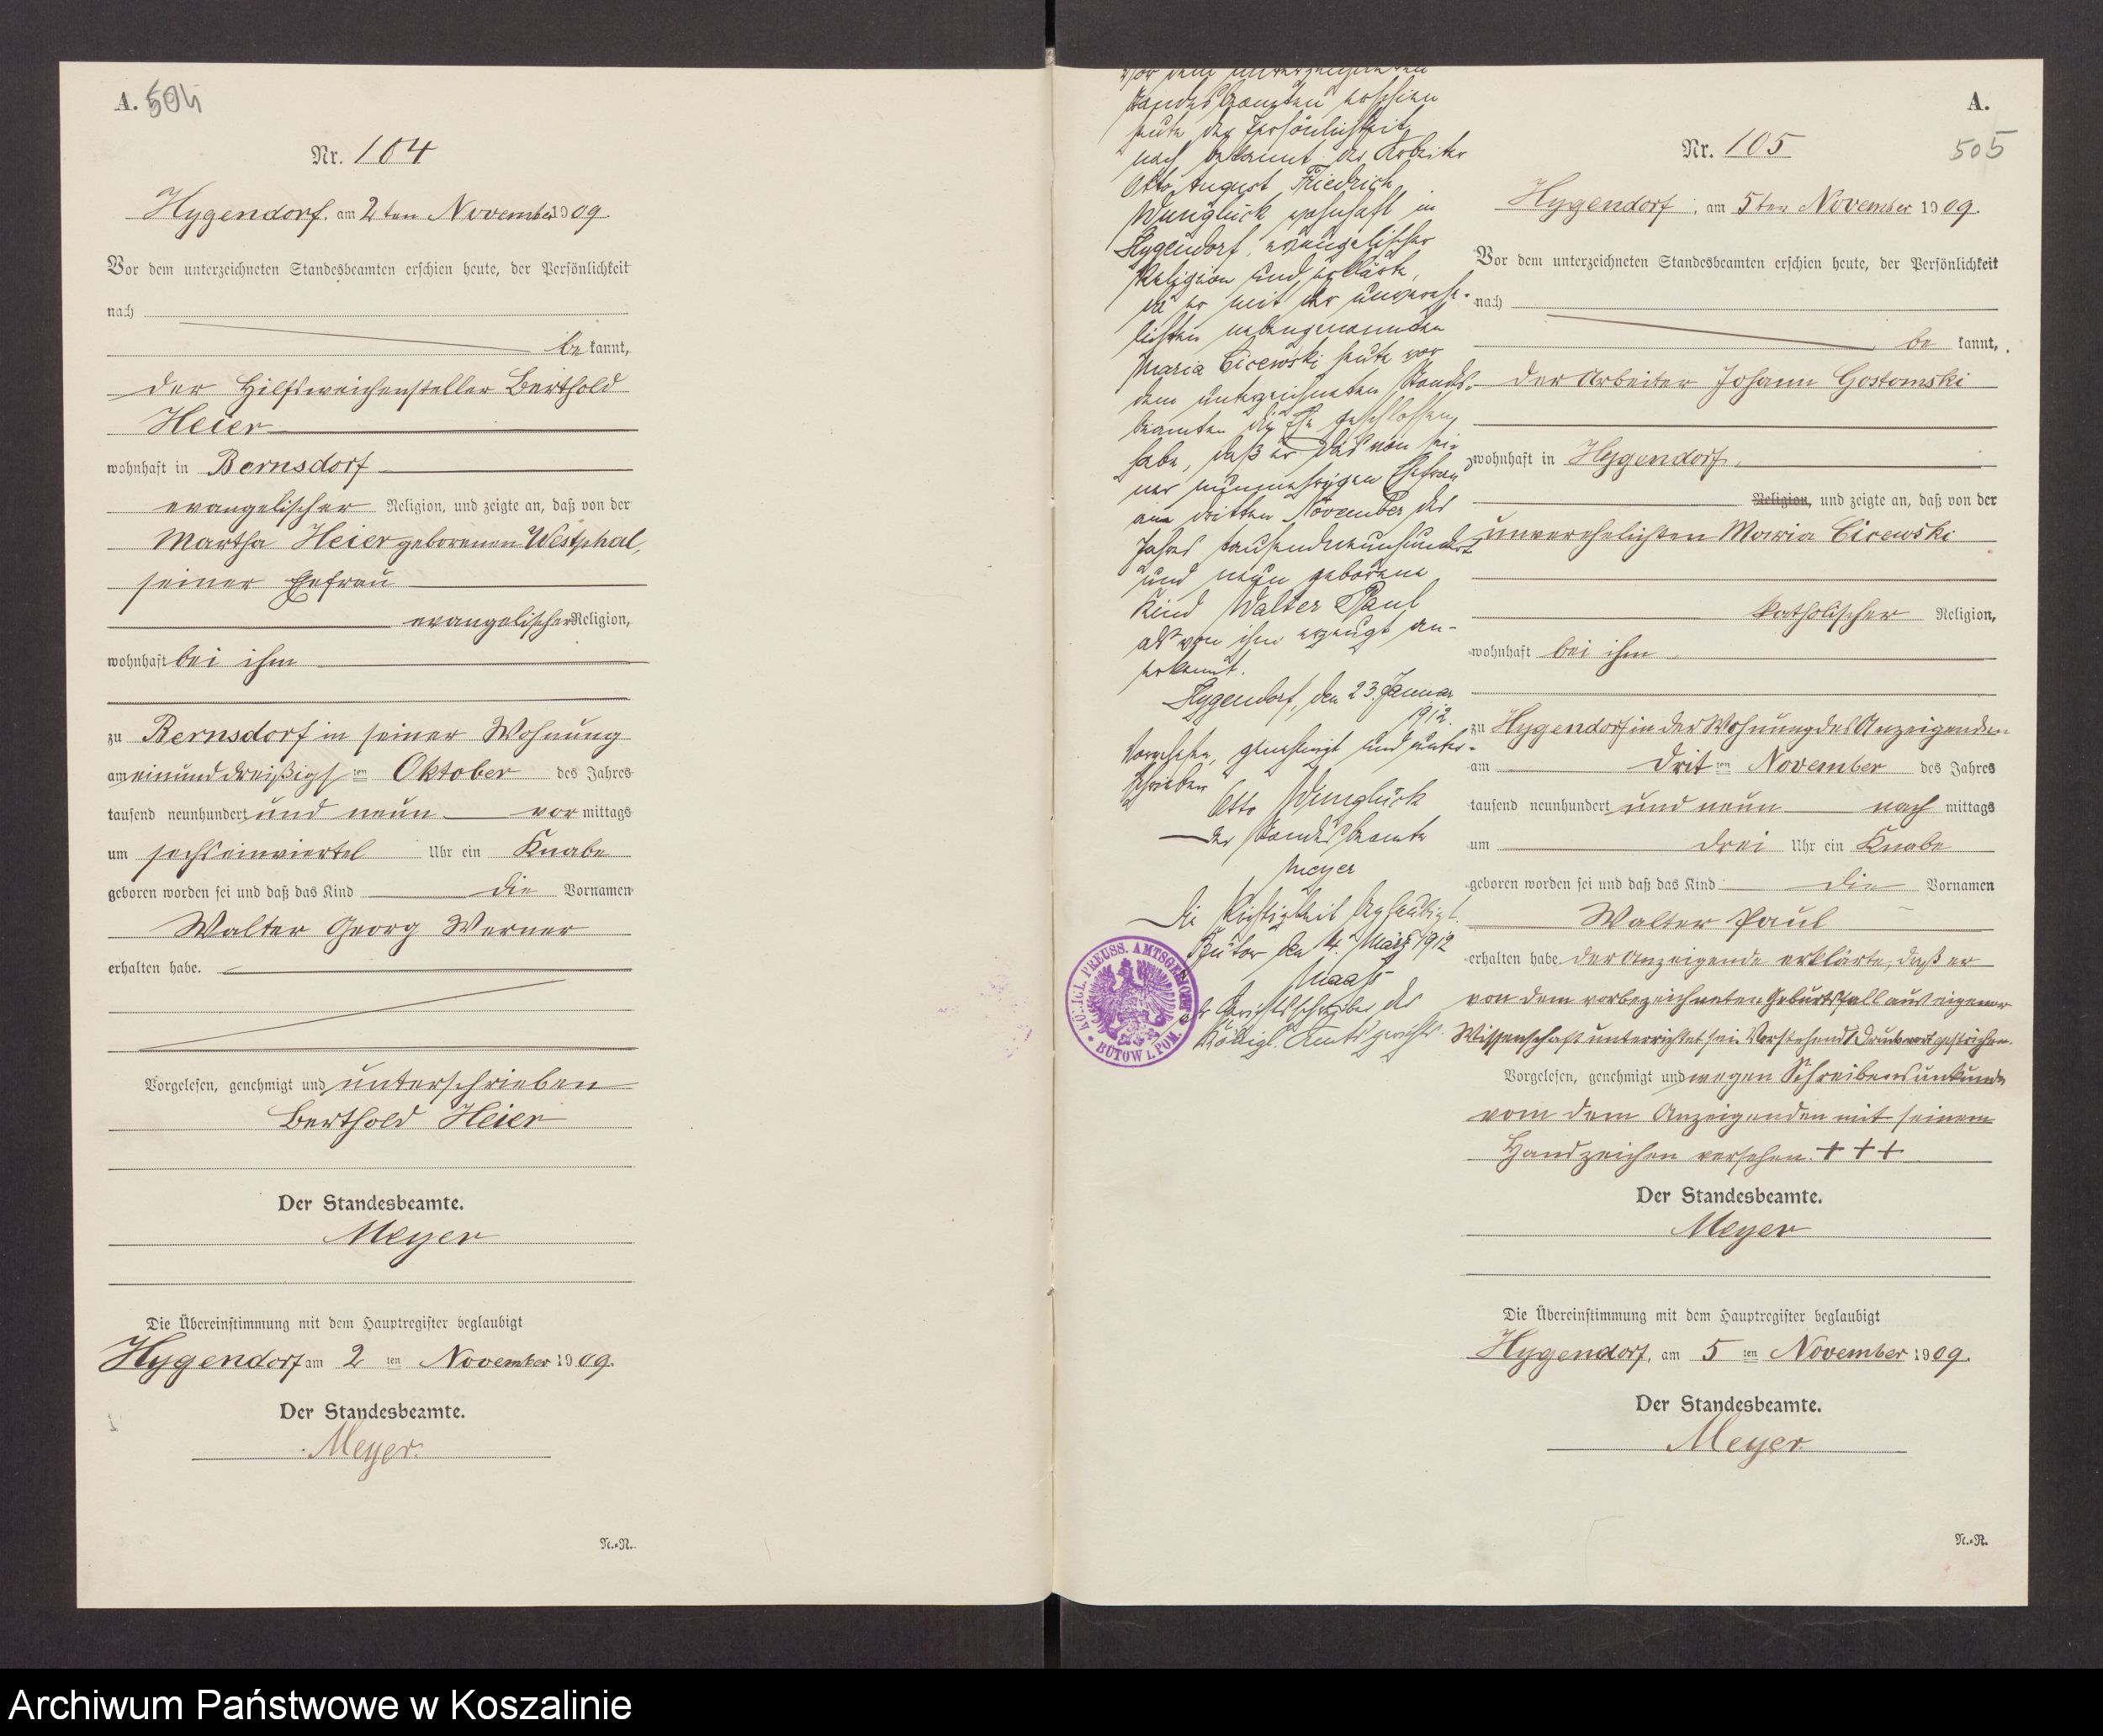 A. 504
Nr. 104
Hygendorf, am 2ten November 1909.
Vor dem unterzeichneten Standesbeamten erschien heute, der Persönlichkeit
nach
be kannt,
der Hilfsweichensteller Berthold
Heier
wohnhaft in Bernsdorf
evangelischer Religion, und zeigte an, daß von der
Martha Heier geborenen Westphal,
seiner Ehefrau
evangelischer Religion,
wohnhaft bei ihm
zu Bernsdorf in seiner Wohnung
am einunddreißigsten Oktober des Jahres
tausend neunhundert und neun vor mittags
um sechseinviertel Uhr ein Knabe
geboren worden sei und daß das Kind die Vornamen
Walter Georg Werner
erhalten habe.
Vorgelesen, genehmigt und unterschrieben
Berthold Heier
Der Standesbeamte.
Meyer
Die Übereinstimmung mit dem Hauptregister beglaubigt
Hygendorf am 2ten November 1909.
Der Standesbeamte.
Meyer.
N.=R.
Vor dem unterzeichneten
Standesbeamten erschien
heute der Persönlichkeit
nach bekannt der Arbeiter
Otto August Friedrich
Wunglück wohnhaft in
Hygendorf, evangelischer
Religion und erklärte,
da er mit der unverehe-
lichten nebengenannten
Maria Cicewski heute vor
dem unterzeichneten Standes-
beamten die Ehe geschlossen
habe, daß er das von sei-
ner nunmehrigen Ehefrau
am dritten November des
Jahres tausendneunhundert
und neun geborene
Kind Walter Paul
als von ihm erzeugt an-
erkennt.
Hygendorf, den 23. Januar
1912.
Vorgelesen, genehmigt und unter-
schrieben
Otto Wunglück
Der Standesbeamte
Meyer
Die Richtigkeit beglaubigt.
Bütow den 4. März 1912
Maaß
Gerichtsschreiber des
Königl. Amtsgerichts.
KÖNIGL. PREUSS. AMTSGERICHT
BÜTOW I. POM.
A.
505
Nr. 105
Hygendorf, am 5ten November 1909.
Vor dem unterzeichneten Standesbeamten erschien heute, der Persönlichkeit
nach
be kannt,
der Arbeiter Johann Gostomski
wohnhaft in Hygendorf,
Religion, und zeigte an, daß von der
unverehelichten Maria Cicewski
katholischer Religion,
wohnhaft bei ihm
zu Hygendorf in der Wohnung des Anzeigenden
am dritten November des Jahres
tausend neunhundert und neun nach mittags
um drei Uhr ein Knabe
geboren worden sei und daß das Kind die Vornamen
Walter Paul
erhalten habe. Der Anzeigende erklärte, daß er
von dem vorbezeichneten Geburtsfall aus eigener
Wissenschaft unterrichtet sei. Vorstehend 1 Druckwort gestrichen.
Vorgelesen, genehmigt und wegen Schreibensunkunde
vom dem Anzeigenden mit seinem
Handzeichen versehen. + + +
Der Standesbeamte.
Meyer
Die Übereinstimmung mit dem Hauptregister beglaubigt
Hygendorf, am 5ten November 1909.
Der Standesbeamte.
Meyer
N.=R.
Archiwum Państwowe w Koszalinie